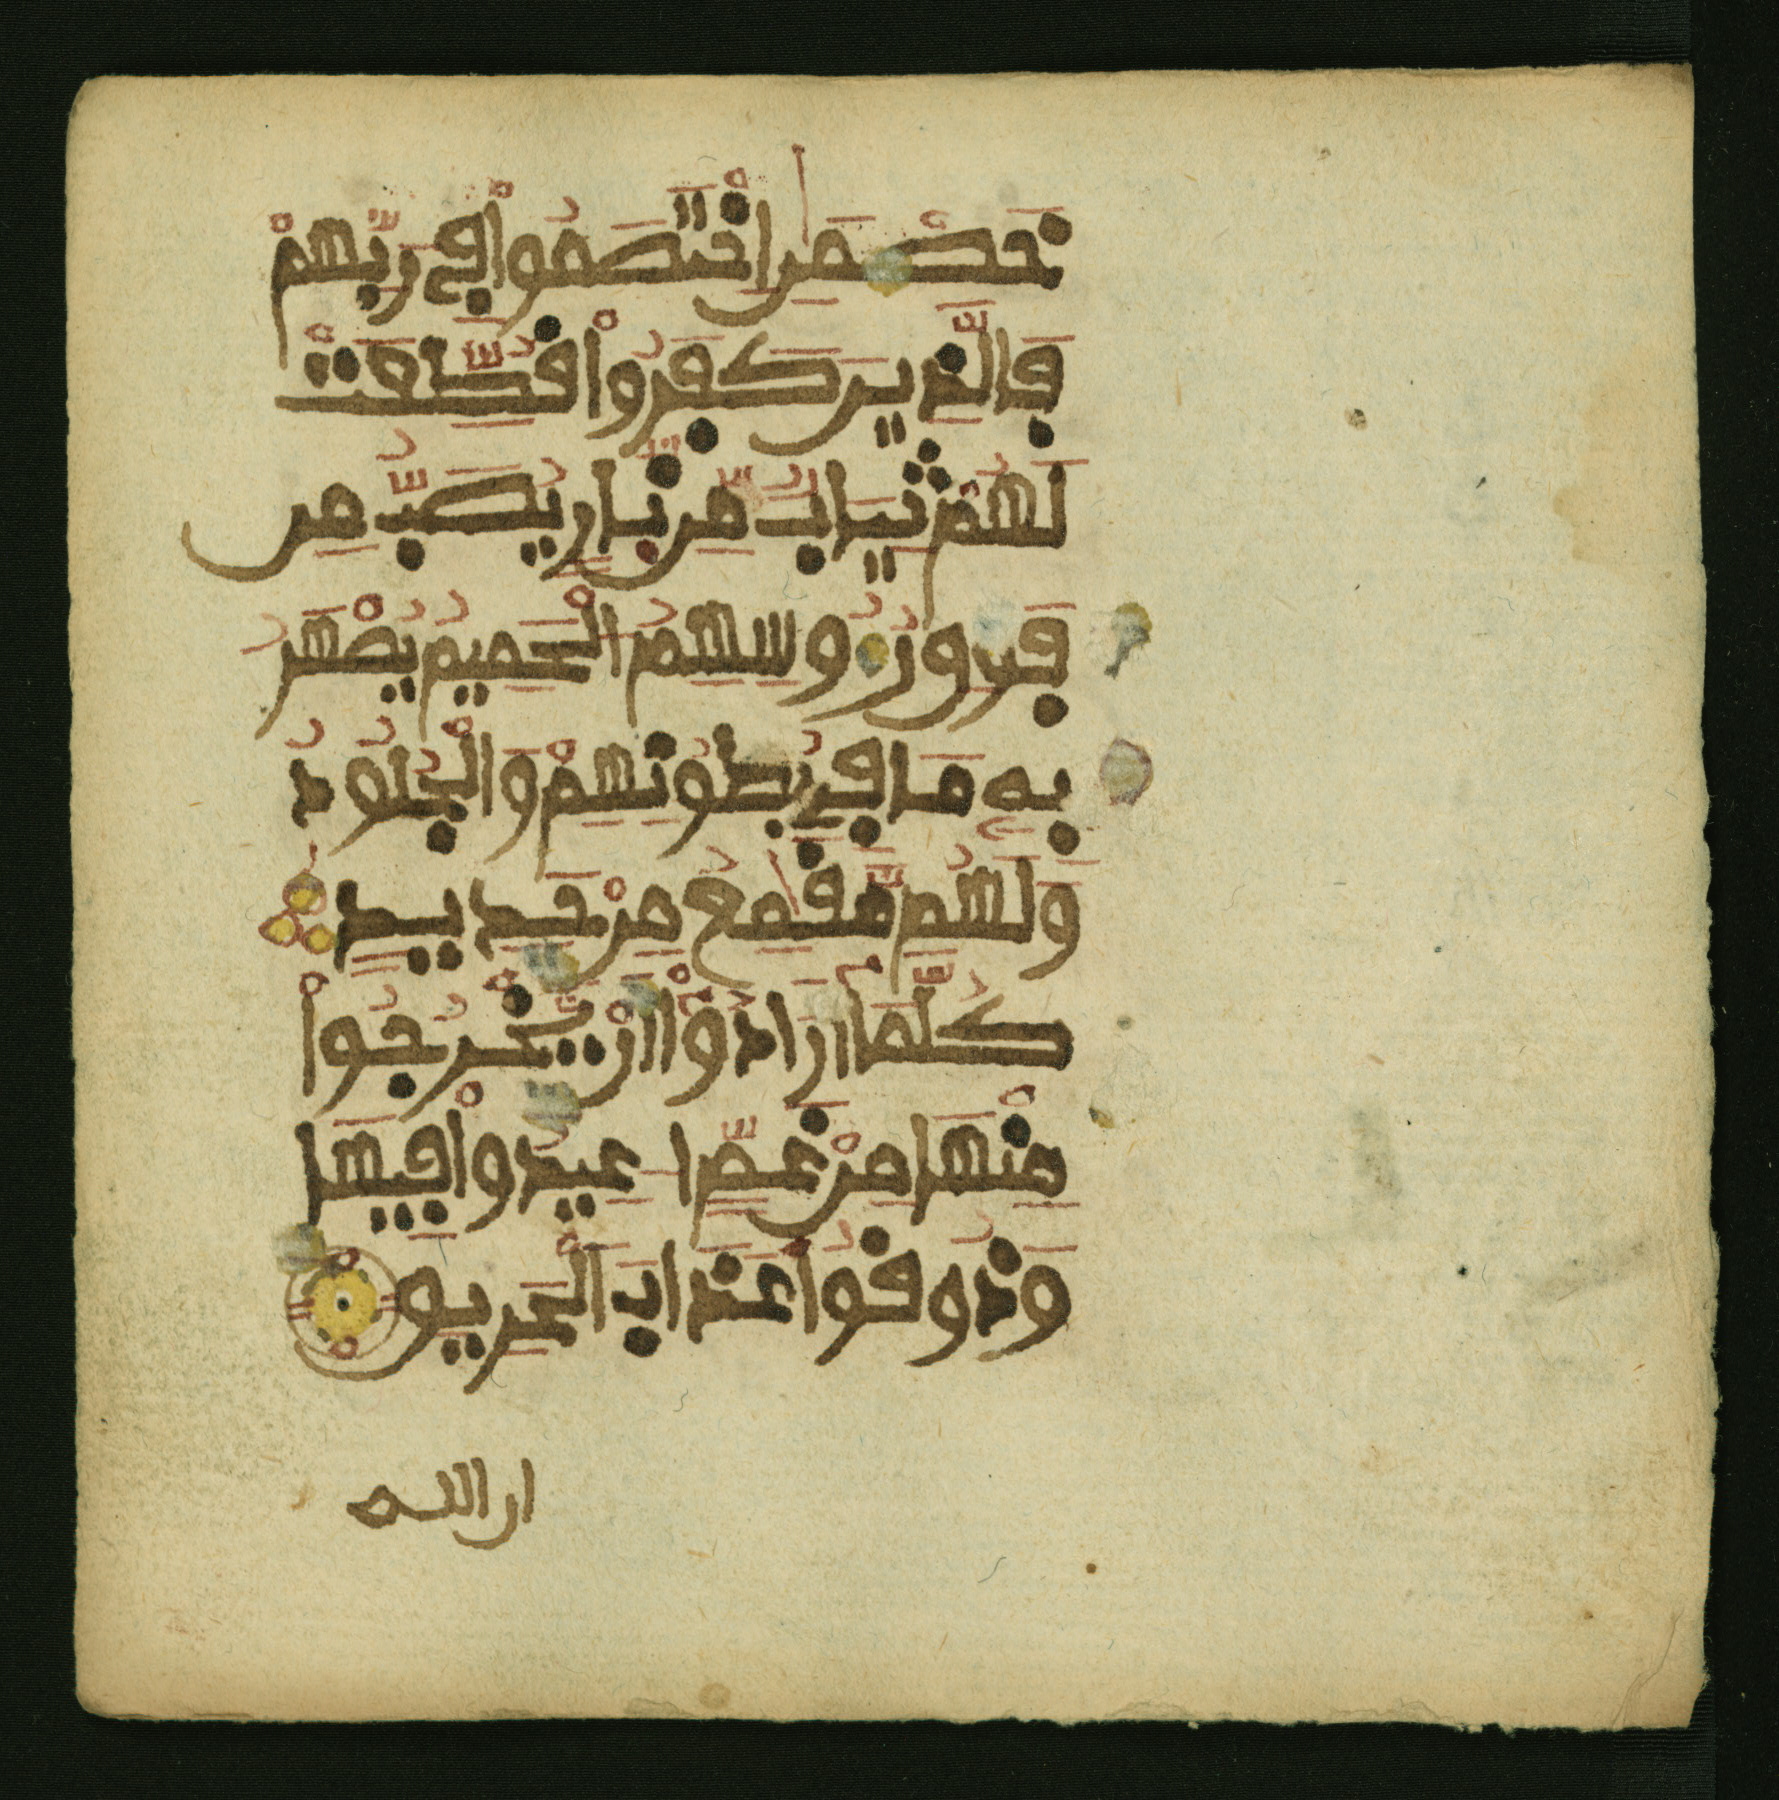 خَصْمَٰنِ اخْتَصَمُواْ فِي رَبِّهِمْ
فَالَّذِينَ كَفَرُواْ قُطِّعَتْ
لَهُمْ ثِيَابٌ مِّن نَّارٍ يُصَبُّ مِن
فَوْقِ رُءُوسِهِمُ الْحَمِيمُ يُصْهَرُ
بِهِ مَا فِي بُطُونِهِمْ وَالْجُلُودُ
وَلَهُم مَّقَٰمِعُ مِنْ حَدِيدٍ
كُلَّمَا أَرَادُواْ أَنْ يَّخْرُجُواْ
مِنْهَا مِنْ غَمٍّ اعِيدُواْ فِيهَا
وَذُوقُواْ عَذَابَ الْحَرِيقِ
ان الله